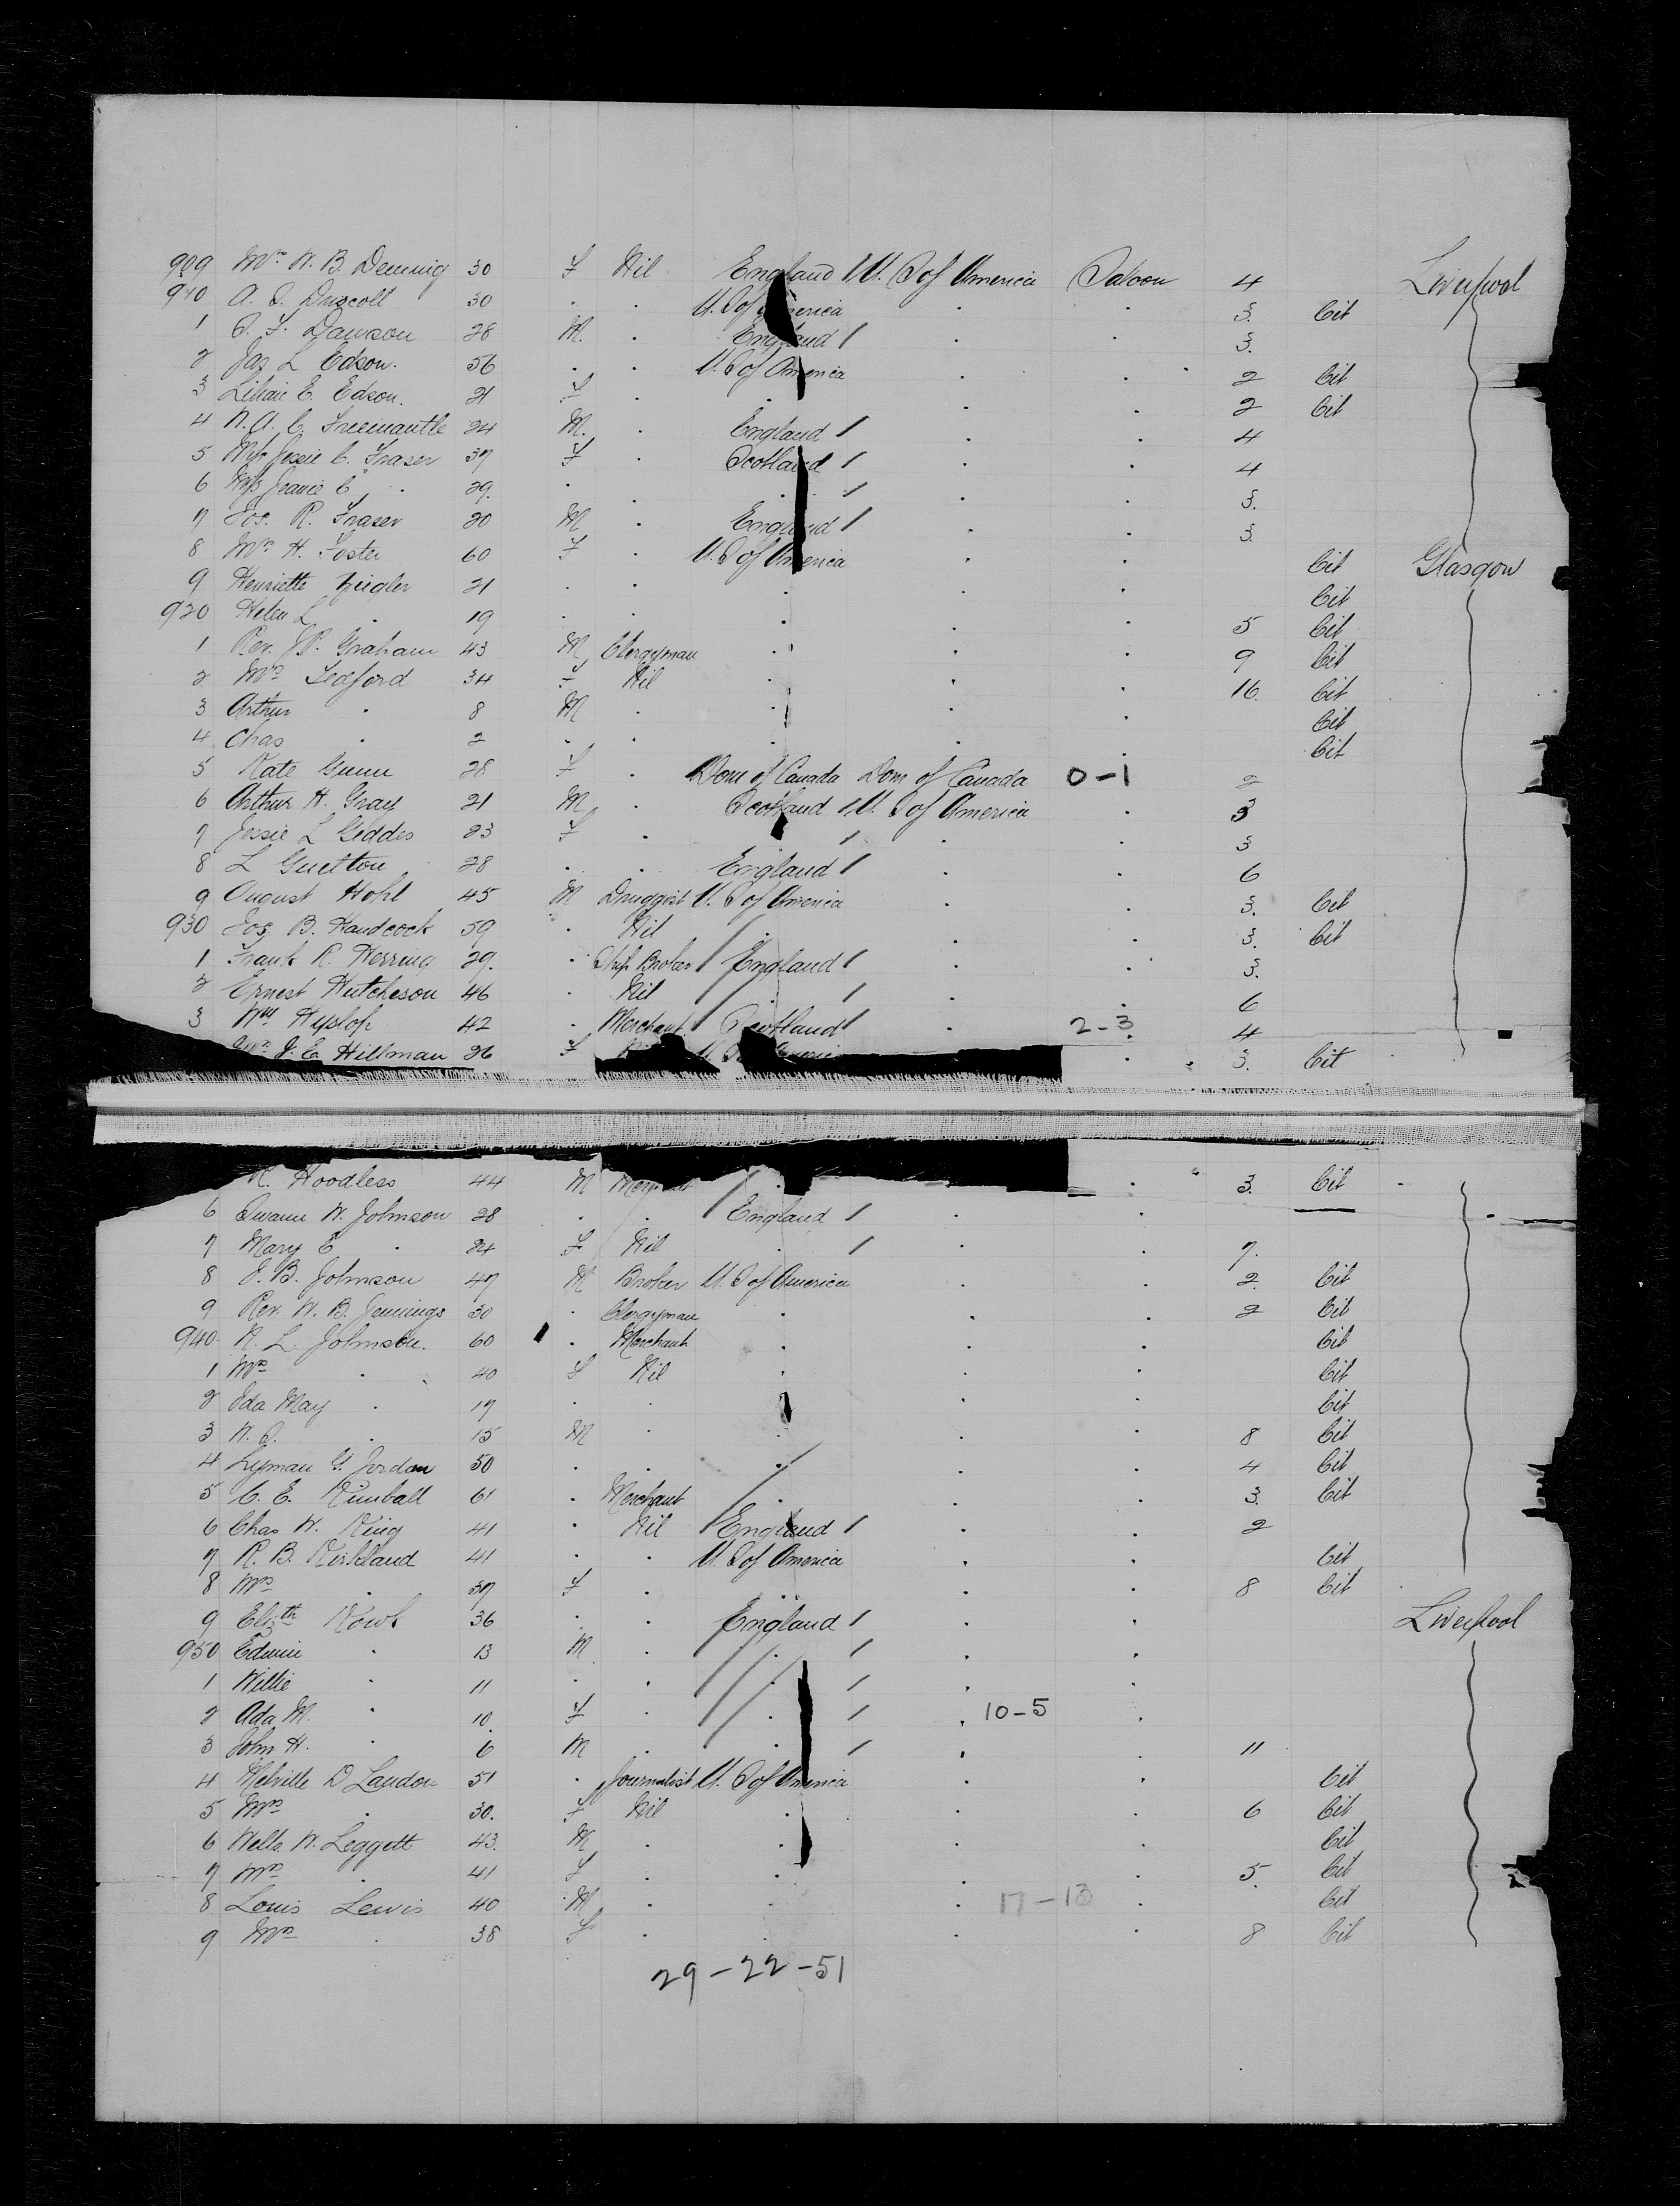 909 Mrs W. B. Demmig 30 F Nil England / U. S of America Saloon 4 Liverpool
910 A. S. Driscoll 30 . . U. S of America . . 3. Cit
1 S. F. Dawson 28 M. . England / . . 3.
2 Jas L Edson. 56 . . U. S of America . . 2 Cit
3 E. Edson. 21 F . . . . 2 Cit
4 W. A. C. Freemantle 24 M. . England / . . 4
5 Miss Jessie C. Fraser 37 F . Scotland / . . 4
6 Miss Jeanie C . 29. . . . / . . 3.
7 Jos. R. Fraser 20 M . England / . . 3.
8 Mrs H. Foster 60 F . U. S of America . . Cit Glasgow
9 Henriette Ziegler 21 . . . . . Cit
920 Helen L . 19 . . . . . 5 Cit
1 Rev. J. P. Graham 43 M Clergyman . . . 9 Cit
2 Mrs Ledford 34 F Nil . . . 16. Cit
3 Arthur . 8 M . . . . Cit
4 Chas . 2 . . . . . Cit
5 Kate Gunn 28 F . Dom of Canada Dom of Canada 0-1 2
6 Arthur H. Gray 21 M . Scotland / U. S of America . 3
7 Jessie L Geddes 23 F . . / . . 3
8 L Guetton 28 . . England / . . 6
9 August Hohl 45 M Druggist U. S of America . . 3. Cit
930 Jos. B. Handcock 59 . Nil . . . 3. Cit
1 Frank R. Herring 29. . Ship Broker England / . . 3.
2 Ernest Hutcheson 46 . Nil . / . . 6
3 Wm Hyslop 42 . Merchant Scotland / . 2-3 . 4
Mrs J. E. Hillman 26 F . 3. Cit
Hoodless 44 M . . 3. Cit
6 Swann W. Johnson 28 . . England / . .
7 Mary E . 24 F Nil . / . . 7.
8 J. B. Johnson 47 M Broker U. S of America . . 2. Cit
9 Rev. W. B. Jennings 30 . Clergyman . . . 2 Cit
940 L. Johnson. 60 . Merchant . . . Cit
1 Mrs . 40 F Nil . . . Cit
2 Ida May . 17 . . . . . Cit
3 W. S. . 15 M . . . . 8 Cit
4 Lyman G. Jordan 50 . . . . . 4 Cit
5 C. E. Kimball 61 . Merchant . . . 3. Cit
6 Chas W. King 41 . Nil England / . . 2
7 R. B. Kirkland 41 . . U. S of America . . Cit
8 Mrs . 37 F . . . . 8 Cit
9 Elizth 36 . . England / . . Liverpool
950 Edwin . 13 M . . / . .
1 Willie . 11 . . . / . .
2 Ada M. . 10. F . . / . 10-5 .
3 John H. . 6 M . . / . . 11
4 Melville D Landon 51 . Journalist U. S of America . . Cit
5 Mrs . 30. F Nil . . . 6 Cit
6 Wells W. Leggett 43. M . . . . Cit
7 Mrs . 41 F . . . . 5. Cit
8 Louis Lewis 40 M . . . 17-13 . Cit
9 Mrs . 38 F . . . . 8 Cit
29-22-51